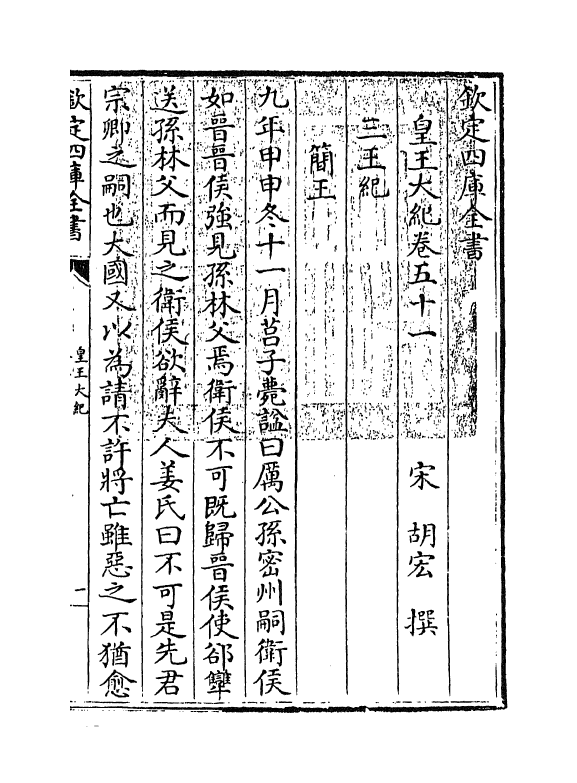 欽定四庫全書
皇王大紀卷五十一
宋 胡宏 撰
三王紀
簡王
九年申申冬十一月莒子薨諡曰厲公孫密州嗣衛侯
如晉晉侯強見孫林父焉衛侯不可既歸晉侯使郤犫
送孫林父而見之衛侯欲辭夫人姜氏曰不可是先君
宗卿之嗣也大國又以為請不許將亡雖惡之不猶愈
欽定四庫全書
皇王大紀
一